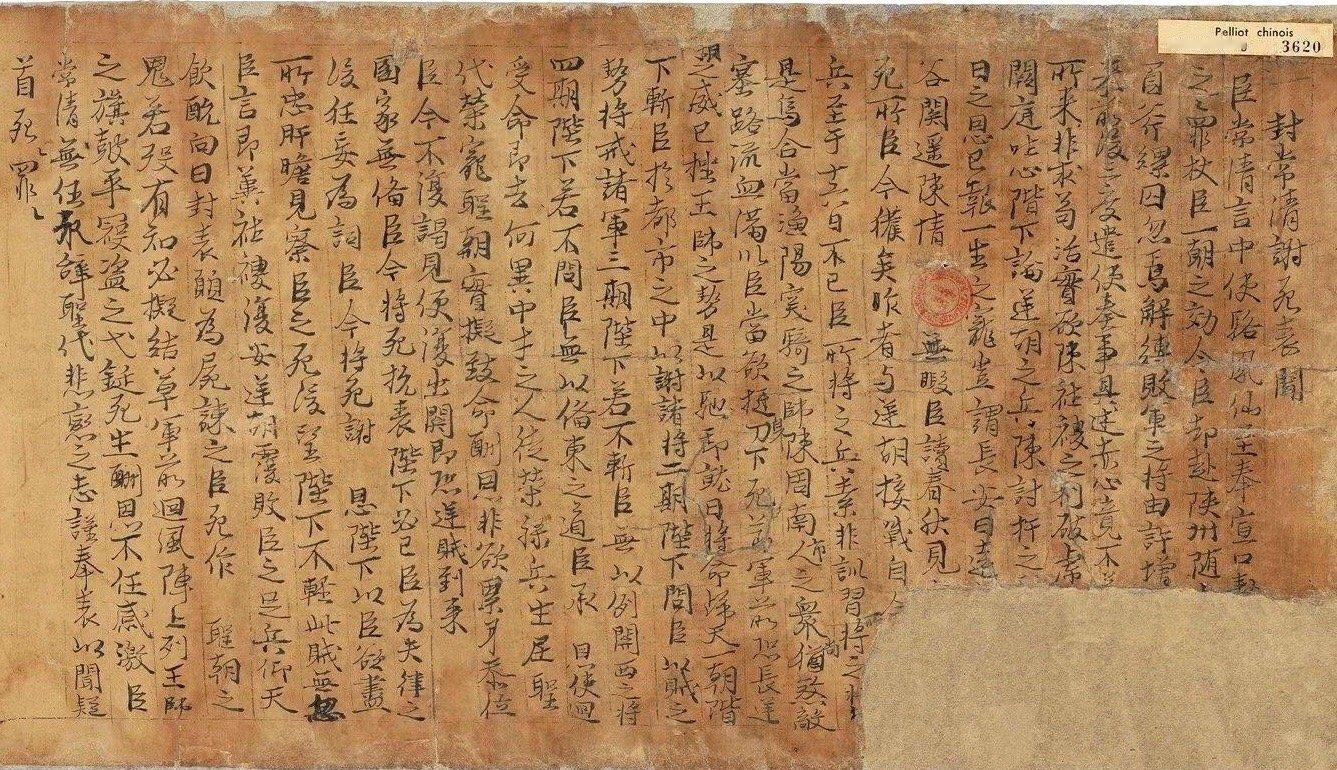 Pelliot chinois
3620
封常清謝死表聞
臣常清言中使駱奉仙至奉宣口
之罪杖臣一朝之効今臣却赴陝州随
首介縲囚忽焉解縳敗軍之将由許增
度遣使奉事具述赤心竟不
所来非求苟活實欲陳社稷之利破
闕庭吐心陛下論逆胡之兵陳討扞之
日之恩已報一生之寵豈謂長安日遠
谷關遥陳情 無暇臣讀春秋見
死所臣今獲矣昨者与逆胡接戰自
兵至于十六日不已臣所将之兵素非訓習将之
是烏合當漁陽突騎之師陳周南人市之衆猶尚敵
塞路流血滿川臣當欲挺身刀下死於軍前恐長逆
胡之威已挫王師之勢是以馳却就日将命歸天一朝階
下斬臣於都市之中以謝諸将二期陛下問臣以賊之
勢将戒諸軍三期陛下若不斬臣無以例關西之将
四期陛下若不問臣無以俻東之道臣承 日使迴
受命即去何異中才之人徒榮孫兵生居聖
代榮寵聖朝實擬致命酬恩非欲累身忝位
臣今不復謁見便復出關即恐逆賊到来
國家無俻臣今将死抗表陛下必已臣為失律之
後任妄為詞臣今将死謝 恩陛下以臣欲盡
所忠肝膽見察臣之死後望陛下不輕此賊無忽
臣言即冀社稷復安逆胡覆敗臣之足矣仰天
飲酖向日封表願為屍諫之臣死作 聖朝之
鬼若殁有知必擬結草軍前迴風陣上列王師
之旗鼓平寇盗之戈鋋死生酬恩不任感激臣
常清無任永辞聖代悲戀之志謹奉表以聞疑
首死々罪々